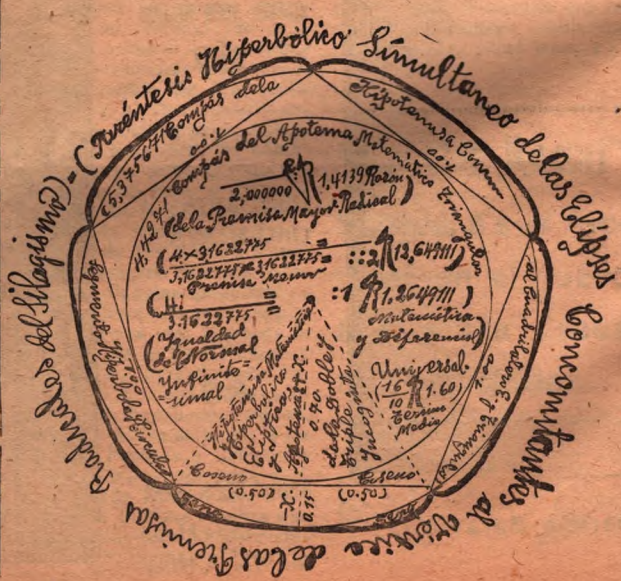 (Paréntesis Hiperbólico Simultaneo de las Elipses Concomitantes al Vértice de las Premisas Radicales del Silogismo) =
(5,375671 Compás de la
Hipotenusa Comun
4.4297 Compás del Apotema Matemático Triangular
2,000000 R 1,4139 Razón
(de la Premisa Mayor Radical)
(4 x 3.1622775 =
3,1622775 x 3,1622775 = : : 2 R 12,649111)
Premisa Menor
(4: = : 1 R 1.2649111)
3.1622775
Matemática
y Diferencial
(Igualdad
Normal
Infinite=
simal
Universal
(16
10 R 1.60)
Termino
Medio
Hipotenusa Matemática
Hiperbolico
Eliptica
y
Apotema
0.70
de la Doble y
Triple
Incognita
Coseno
Coseno
(0.50)
(0.50)
-X-
0.15